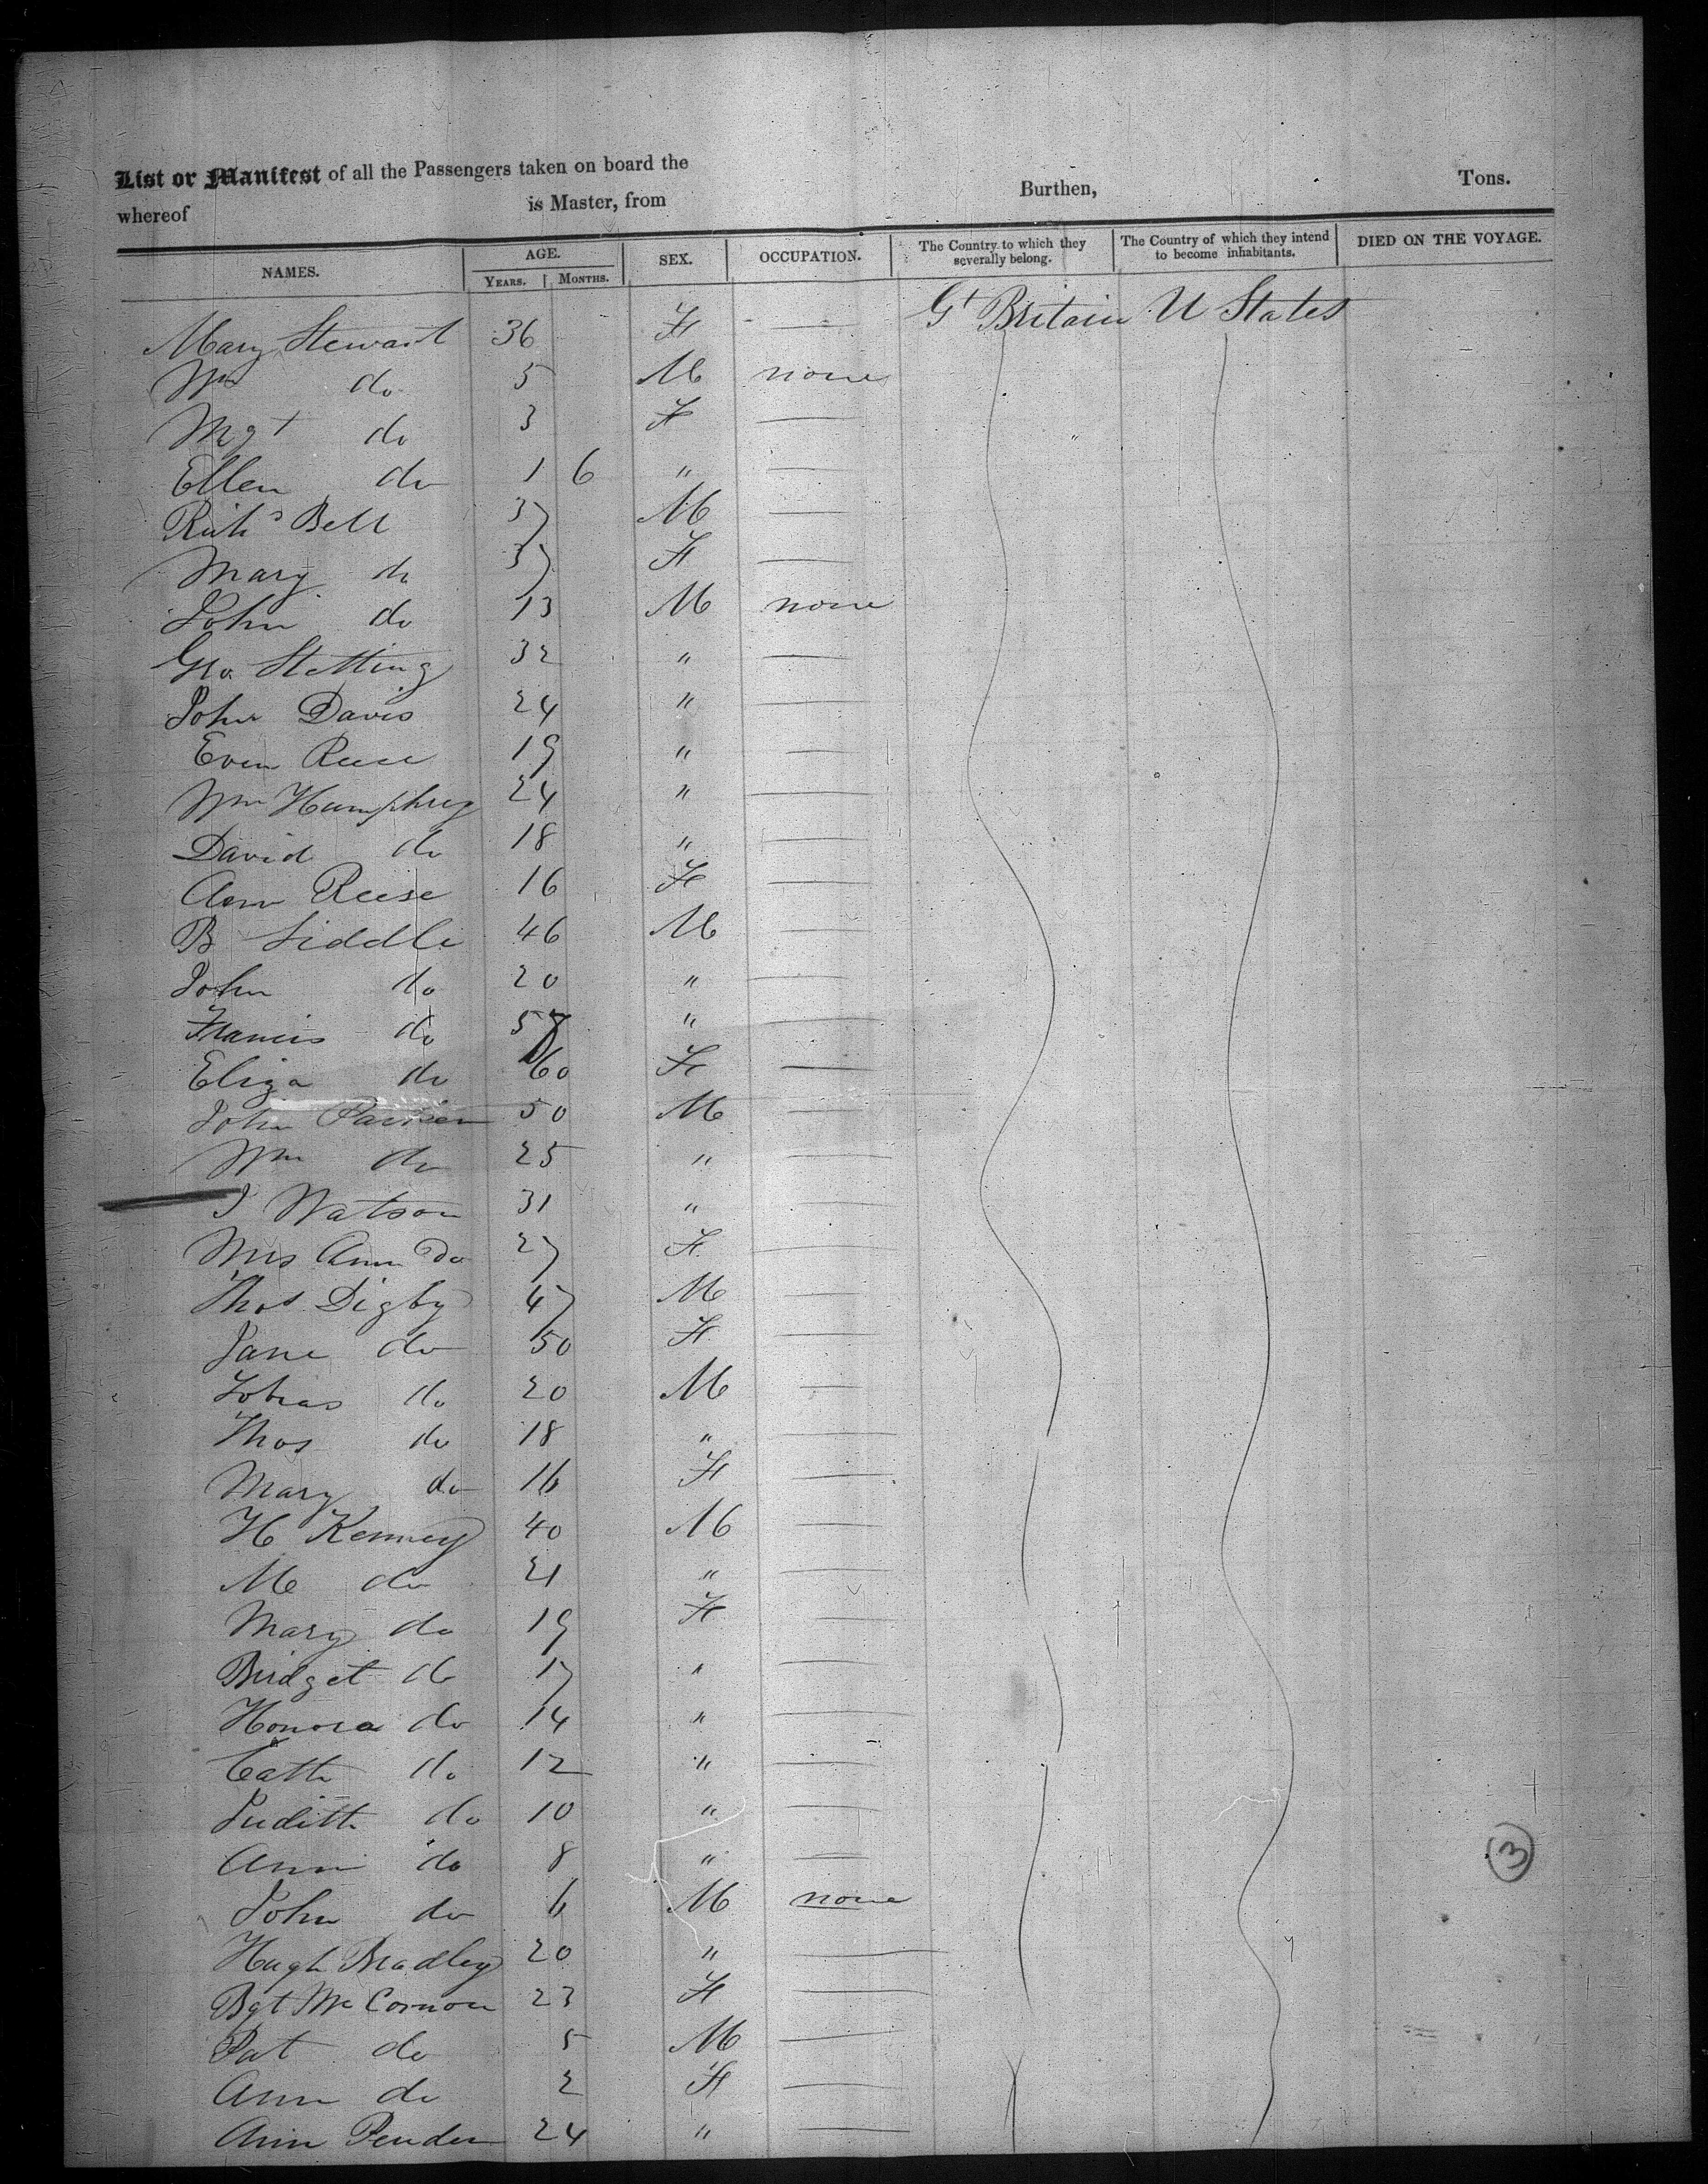 List or Manifest of all the Passengers taken on board the Burthen, Tons.
whereof is Master, from
NAMES. AGE. YEARS. MONTHS. SEX. OCCUPATION. The Country to which they severally belong. The Country of which they intend to become inhabitants. DIED ON THE VOYAGE.
Mary Stewart 36 F — Gt Britain U States
Wm do 5 M none
Mgt do 3 F —
Ellen do 1 6 " —
Richd Bell 37 M —
Mary do 37 F —
John do 13 M none
Geo. Stetting 32 " —
John Davis 24 " —
Even Reese 19 " —
Wm Humphrey 24 " —
David do 18 " —
Ann Reese 16 F —
B Liddle 46 M —
John do 20 " —
Francis do 57 " —
Eliza do 60 F —
John 50 M —
Wm do 25 " —
J Watson 31 " —
Mrs Ann Do 27 F —
Thos Digby 47 M —
Jane do 50 F —
Tobias do 20 M —
Thos do 18 " —
Mary do 16 F —
H Kenney 40 M —
M do 21 " —
Mary do 19 F —
Bridget do 17 " —
Honora do 14 " —
Cath do 12 " —
Judith do 10 " —
Ann do 8 " —
John do 6 M none
Hugh Bradley 20 " —
Bgt McCornon 23 F —
Pat do 5 M —
Ann do 2 F —
Ann Pender 24 " —
3